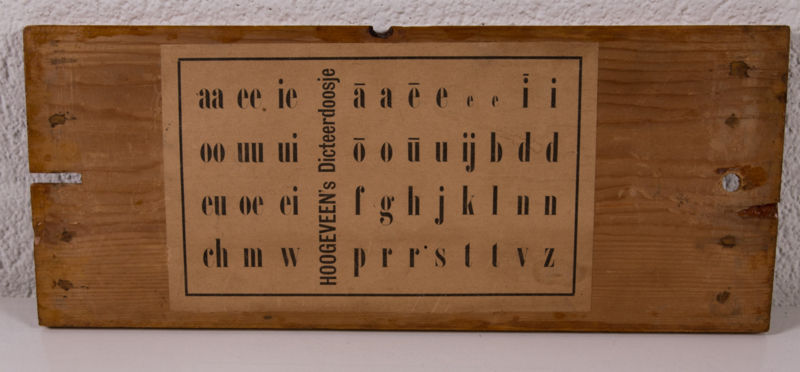 aa ee ie
oo uu ui
eu oe ei
ch m w
HOOGEVEEN's Dicteerdoosje
ā a ē e e e ī i
ō o ū u ij b d d
f g h j k l n n
p r r s t t v z